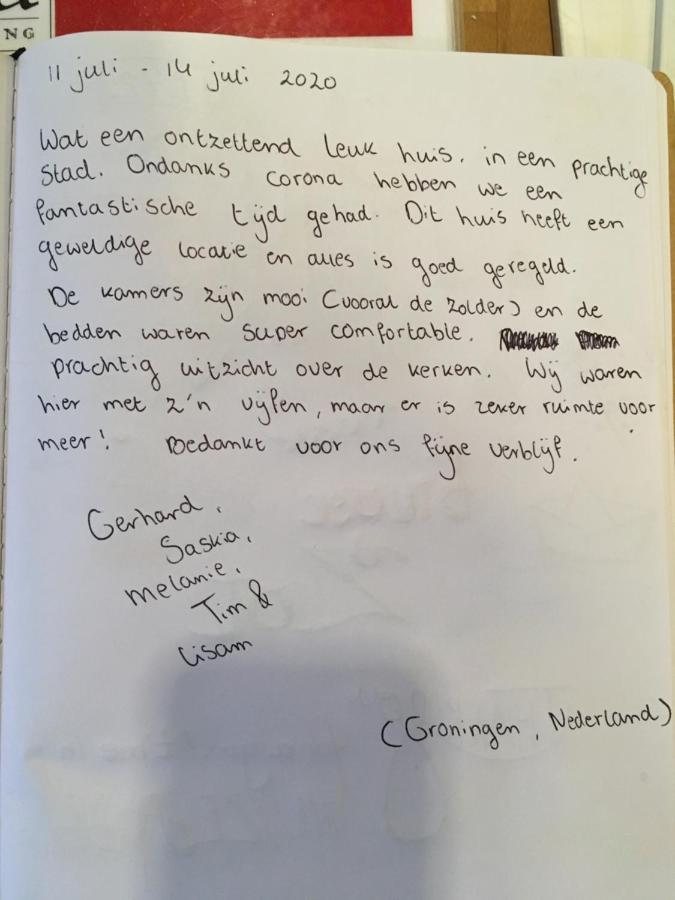 NG
11 juli - 14 juli 2020
Wat een ontzettend leuk huis, in een prachtige
stad. Ondanks corona hebben we een
fantastische tijd gehad. Dit huis heeft een
geweldige locatie en alles is goed geregeld.
De kamers zijn mooi (vooral de zolder) en de
bedden waren super comfortable.
prachtig uitzicht over de kerken. Wij waren
hier met z'n vijfen, maar er is zeker ruimte voor
meer! Bedankt voor ons fijne verblijf.
Gerhard,
Saskia,
melanie,
Tim &
Lisam
(Groningen, Nederland)